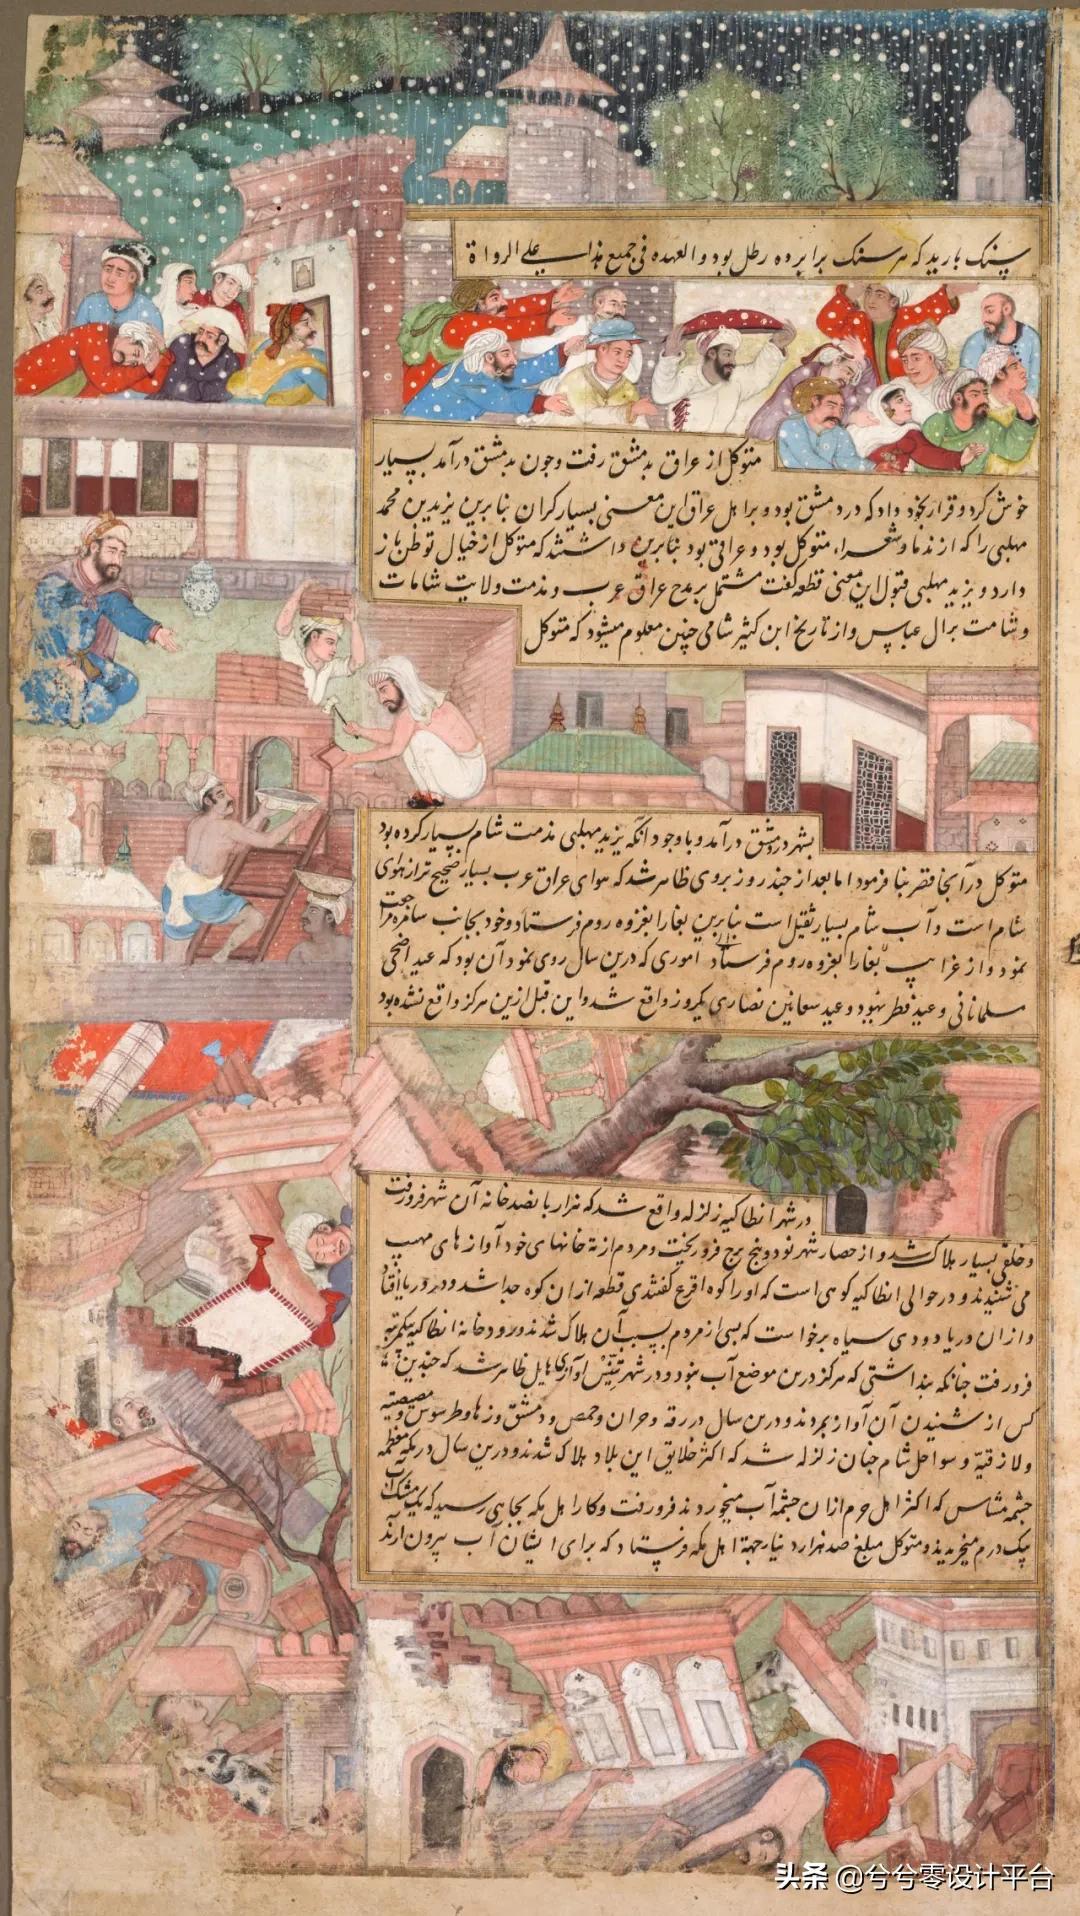 سنک بارید که هر سنک برابر ده رطل بود و العهده فی جمیع هذا علی الرواة
متوکل از عراق بدمشق رفت و چون بدمشق درآمد بسیار
خوش کرد و قرار بخود داد که در دمشق بود و بر اهل عراق این معنی بسیار کران بنابرین یزید بن محمد
مهلبی را که از ندما و شعراء متوکل بود و عراقی بود بنابرین داشتند که متوکل از خیال توطن باز
دارد و یزید مهلبی قبول این معنی قطعه کفت مشتمل بر مدح عراق عرب و مذمت ولایت شامات
و شامت بر ال عباس و از تاریخ ابن کثیر شامی چنین معلوم میشود که متوکل
بشهر دمشق درآمد و باوجود انکه یزید مهلبی مذمت شام بسیار کرده بود
متوکل در آنجا قصر بنا فرمود اما بعد از چند روز بروی ظاهر شد که هوای عراق عرب بسیار صحیح تر از هوای
شام است و آب شام بسیار ثقیل است بنابرین بغا را بغزوه روم فرستاد و خود بجانب سامره مراجعت
نمود و از غرایب اموری که درین سال روی نمود آن بود که عید اضحی
مسلمانانی و عید فطر یهود و عید سعانین نصاری یکروز واقع شد و این قبل ازین هرکز واقع نشده بود
در شهر انطاکیه زلزله واقع شد که هزار پانصد خانه آن شهر فرو رفت
و خلقی بسیار هلاک شد و از حصار شهر نود و پنج برج فرو ریخت و مردم از ته خانهای خود آوازهای مهیب
می شنیدند و در حوالی انطاکیه کوهی است که اورا کوه اقرع کفتندی قطعه از ان کوه جدا شد و در دریا افتاد
و از ان دریا دودی سیاه برخاست که بسی از مردم بسبب آن هلاک شدند و رودخانه انطاکیه یکمرتبه
فرو رفت چنانکه پنداشتی که هرکز درین موضع آب نبود و در شهر تنیس آوازی هایل ظاهر شد که چندین
کس از شنیدن آن آواز بمردند و درین سال در رقه و حران و حمص و دمشق و رها و طرسوس و مصیصیه
و لاذقیه و سواحل شام چنان زلزله شد که اکثر خلایق این بلاد هلاک شدند و درین سال در مکه معظمه
چشمه مشاس که اکثر اهل حرم از ان چشمه آب میخوردند فرو رفت و کار اهل مکه بجایی رسید که یک مشک آب
بیک درم میخریدند و متوکل مبلغ صد هزار دینار جهة اهل مکه فرستاد که برای ایشان آب بیرون آرند
头条 @兮兮零设计平台